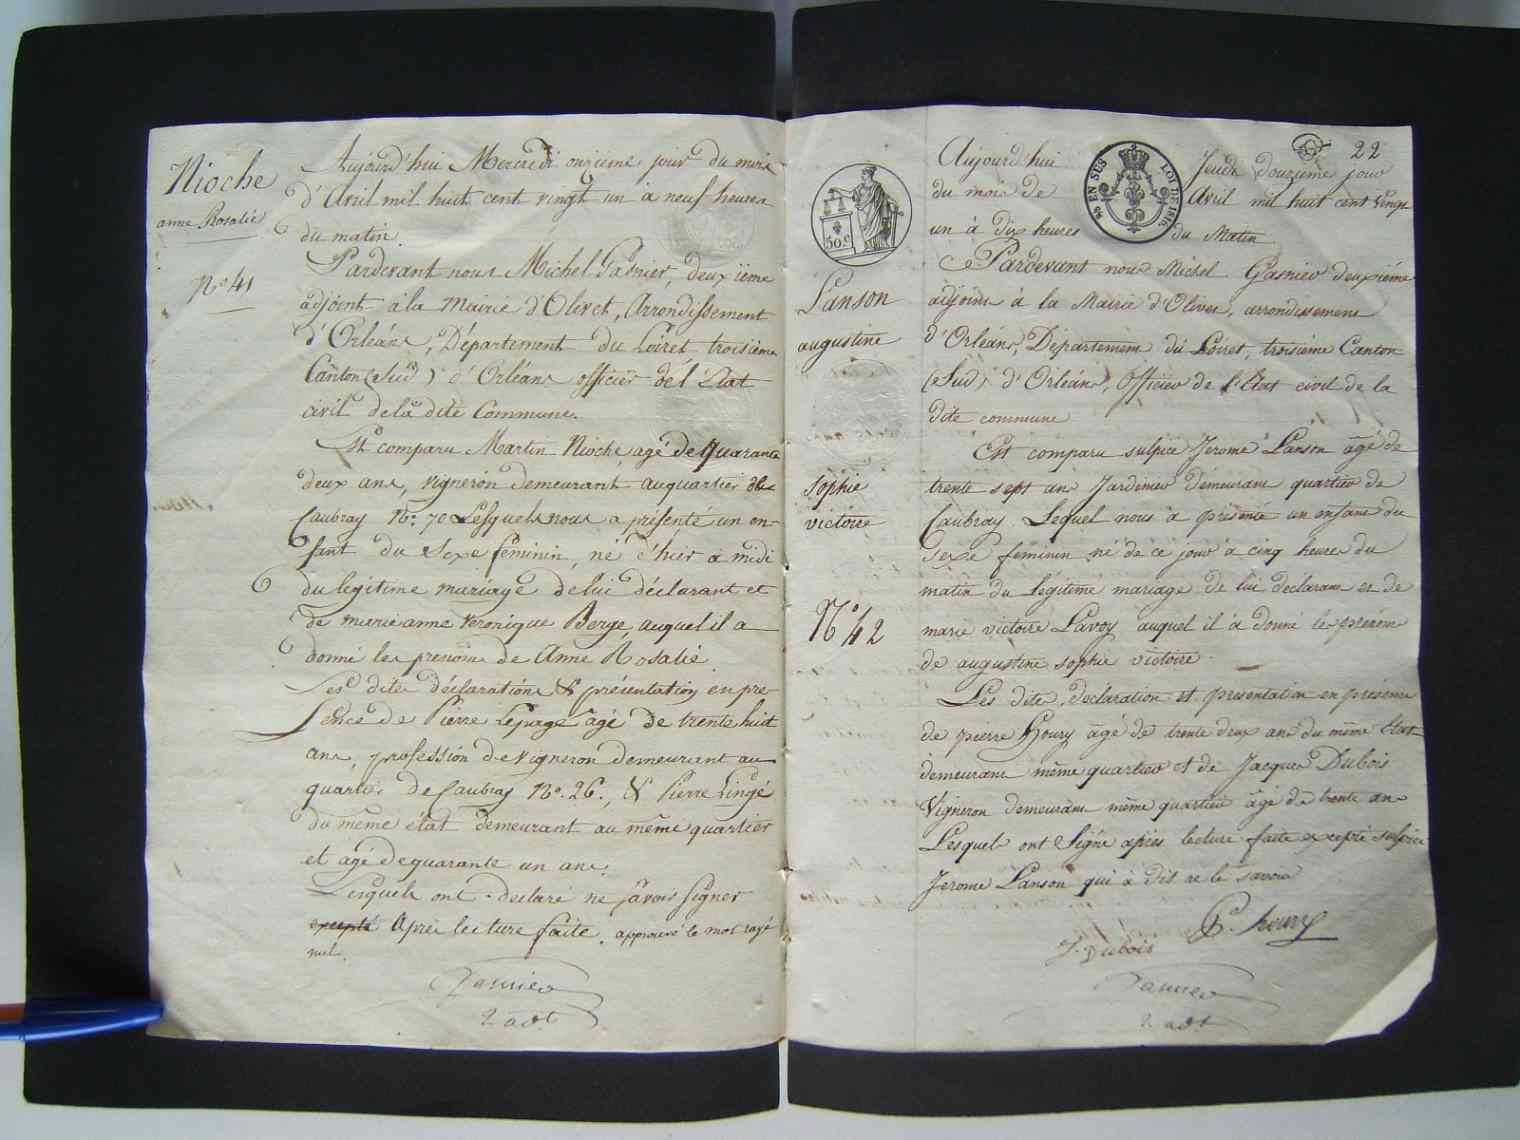 Nioche
anne Rosalie
N° 41
Aujourd'hui Mercredi onzieme jour du mois
d'Avril mil huit cent vingt un à neuf heures
du matin.
Pardevant nous Michel Gasnier, deuxiéme
adjoint à la Mairie d'Olivet, Arrondissement
d'Orléans, Département du Loiret troisième
Canton (Sud) d'Orléans officier de l'Etat
civil de la dite Commune.
Est comparu Martin Nioche, agé de quarante
deux ans, vigneron demeurant au quartier de
Caubray N° 70 Lesquels nous a présenté un en-
fant du Sexe féminin, né d'hier à midi
du legitime mariage de lui déclarant et
de marie anne Veronique Berge, auquel il a
donné les prenoms de Anne Rosalie.
Les dites déclarations & présentation en pre-
sence de Pierre Lepage âgé de trente huit
ans, profession de vigneron demeurant au
quartier de Caubray N° 26., & Pierre Lingé
du même état demeurant au même quartier
et agé de quarante un ans.
Lesquels ont declaré ne savoir signer
excepté Après lecture faite. approuvé le mot rayé
nul.
Gasnier
2 adt
22
50 c
EN SUS
LOI DE 1816.
Lanson
augustine
sophie
victoire
N° 42
Aujourd'hui Jeudi douzieme jour
du mois de Avril mil huit cent vingt
un à dix heures du Matin
Pardevant nous Michel Gasnier deuxiéme
adjoint à la Mairie d'Olivet, arrondissement
d'Orléans, Département du Loiret, troisième Canton
(Sud) d'Orléans, Officier de l'Etat civil de la
dite commune
Est comparu sulpice Jerome Lanson âgé de
trente sept ans Jardinier demeurant quartier de
Caubray Lequel nous à présenté un enfant du
sexe feminin né de ce jour à cinq heures du
matin du légitime mariage de lui declarant et de
marie victoire Lavoy auquel il à donné les prénoms
de augustine sophie victoire.
Les dite declaration et presentation en présence
de pierre Houry âgé de trente deux ans du même Etat
demeurant même quartier et de Jacques Dubois
Vigneron demeurant même quartier âgé de trente ans
Lesquels ont Signé après lecture faite excepté sulpice
Jerome Lanson qui à dit ne le savoir
P. houry
J. Dubois
Gasnier
2 adt